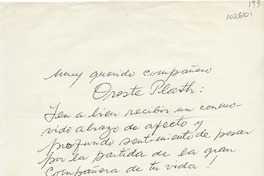 193
102610
Muy querido compañero
Oreste Plath:
Ten a bien recibir un conmo-
vido abrazo de afecto y
profundo sentimiento de pesar
por la partida de la gran
compañera de tu vida!